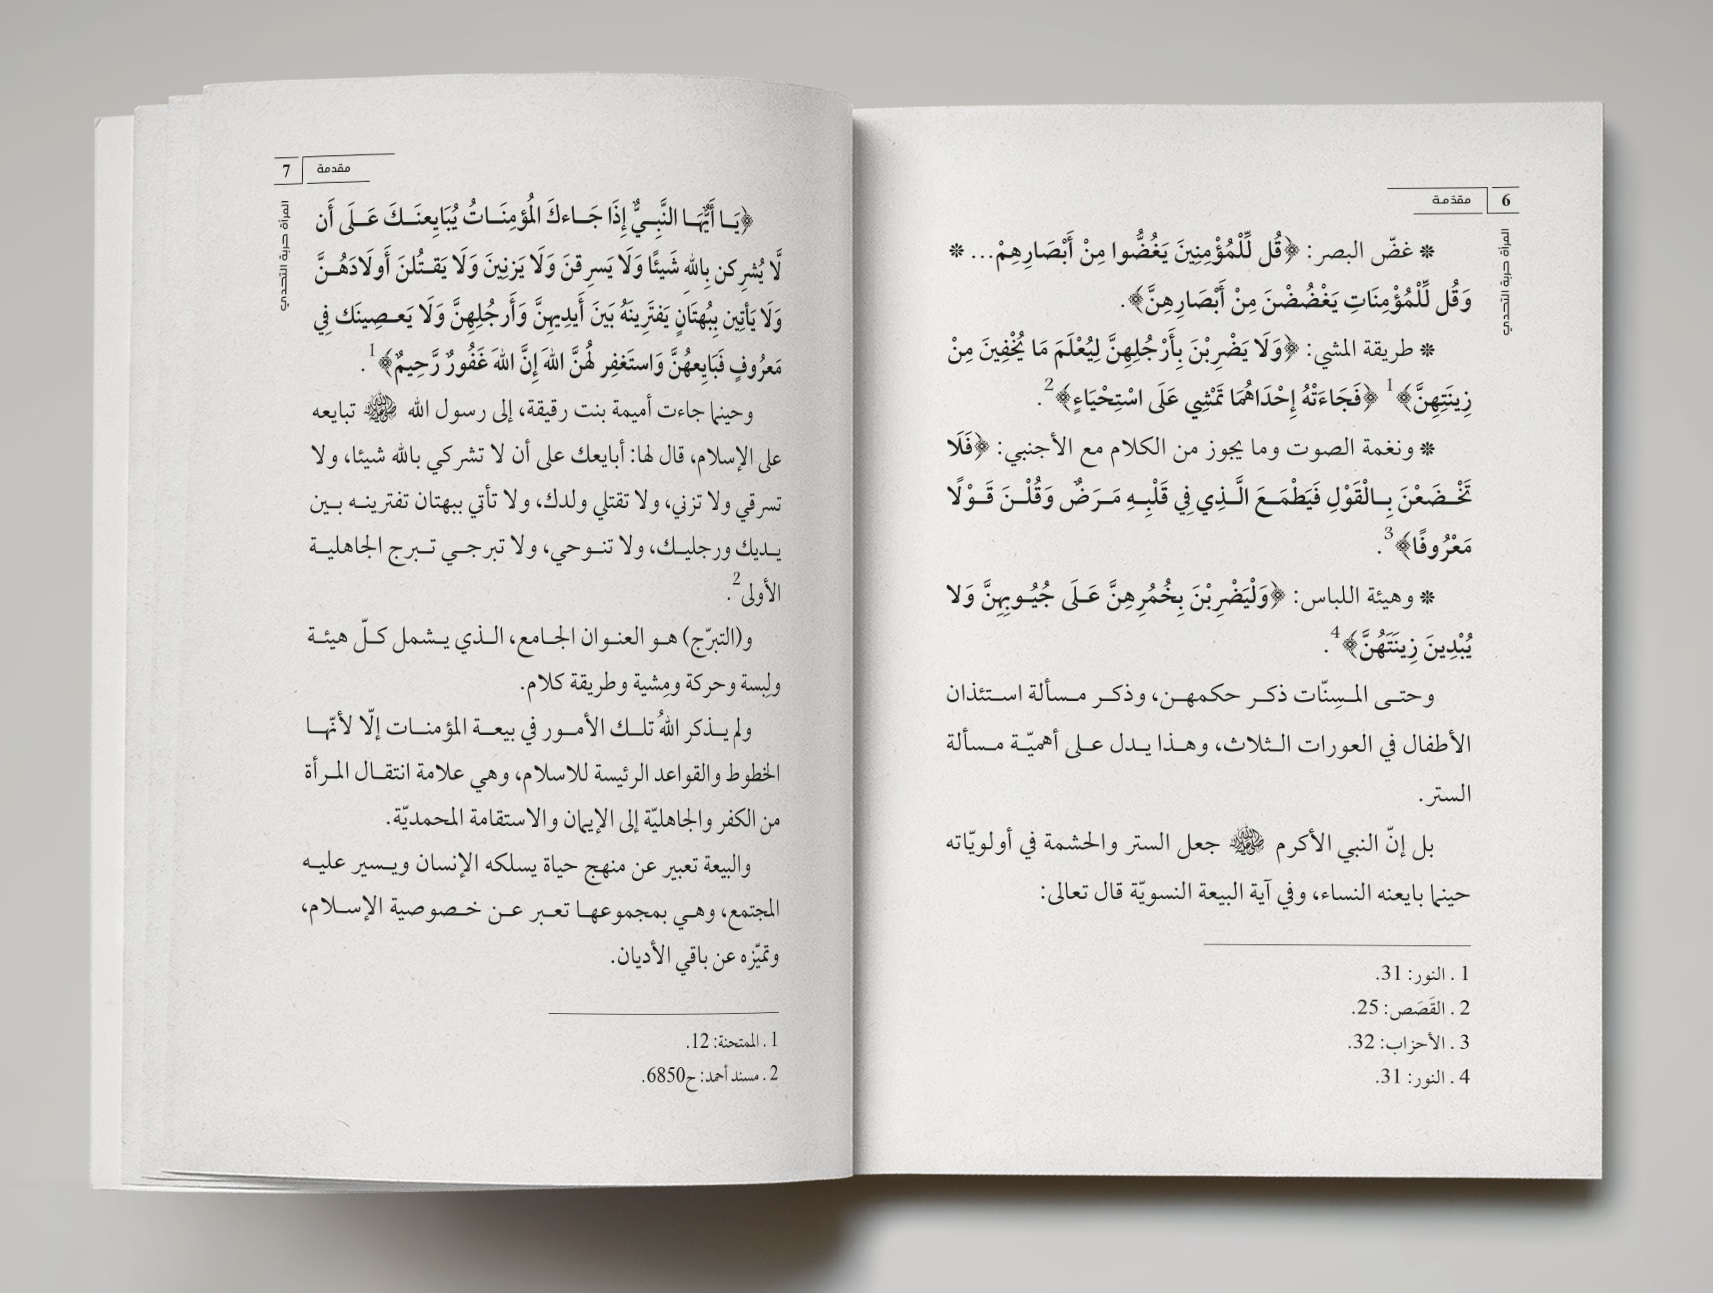 6 مقدّمة
المرأة حربة التحدي
❋ غضّ البصر: ﴿قُل لِّلْمُؤْمِنِينَ يَغُضُّوا مِنْ أَبْصَارِهِمْ... ❋
وَقُل لِّلْمُؤْمِنَاتِ يَغْضُضْنَ مِنْ أَبْصَارِهِنَّ﴾.
❋ طريقة المشي: ﴿وَلَا يَضْرِبْنَ بِأَرْجُلِهِنَّ لِيُعْلَمَ مَا يُخْفِينَ مِنْ
زِينَتِهِنَّ﴾1 ﴿فَجَاءَتْهُ إِحْدَاهُمَا تَمْشِي عَلَى اسْتِحْيَاءٍ﴾2.
❋ ونغمة الصوت وما يجوز من الكلام مع الأجنبي: ﴿فَلَا
تَخْضَعْنَ بِالْقَوْلِ فَيَطْمَعَ الَّذِي فِي قَلْبِهِ مَرَضٌ وَقُلْنَ قَوْلًا
مَعْرُوفًا﴾3.
❋ وهيئة اللباس: ﴿وَلْيَضْرِبْنَ بِخُمُرِهِنَّ عَلَى جُيُوبِهِنَّ وَلا
يُبْدِينَ زِينَتَهُنَّ﴾4.
وحتى المسِنّات ذكر حكمهن، وذكر مسألة استئذان
الأطفال في العورات الثلاث، وهذا يدل على أهميّة مسألة
الستر.
بل إنّ النبي الأكرم ﷺ جعل الستر والحشمة في أولويّاته
حينما بايعنه النساء، وفي آية البيعة النسويّة قال تعالى:
1 . النور: 31.
2 . القَصَص: 25.
3 . الأحزاب: 32.
4 . النور: 31.
مقدمة 7
المرأة حربة التحدي
﴿يَا أَيُّهَا النَّبِيُّ إِذَا جَاءكَ المُؤمِنَاتُ يُبَايِعنَكَ عَلَى أَن
لَّا يُشرِكن بِاللهِ شَيئًا وَلَا يَسرِقنَ وَلَا يَزنِينَ وَلَا يَقتُلنَ أَولَادَهُنَّ
وَلَا يَأتِين بِبُهتَانٍ يَفتَرِينَهُ بَينَ أَيدِيهِنَّ وَأَرجُلِهِنَّ وَلَا يَعصِينَك فِي
مَعرُوفٍ فَبَايِعهُنَّ وَاستَغفِر لَهُنَّ اللهَ إِنَّ اللهَ غَفُورٌ رَّحِيمٌ﴾1.
وحينما جاءت أميمة بنت رقيقة، إلى رسول الله ﷺ تبايعه
على الإسلام، قال لها: أبايعك على أن لا تشركي بالله شيئا، ولا
تسرقي ولا تزني، ولا تقتلي ولدك، ولا تأتي ببهتان تفترينه بين
يديك ورجليك، ولا تنوحي، ولا تبرجي تبرج الجاهلية
الأولى2.
و(التبرّج) هو العنوان الجامع، الذي يشمل كلّ هيئة
ولِبسة وحركة ومِشية وطريقة كلام.
ولم يذكر اللهُ تلك الأمور في بيعة المؤمنات إلّا لأنّها
الخطوط والقواعد الرئيسة للاسلام، وهي علامة انتقال المرأة
من الكفر والجاهليّة إلى الإيمان والاستقامة المحمديّة.
والبيعة تعبير عن منهج حياة يسلكه الإنسان ويسير عليه
المجتمع، وهي بمجموعها تعبر عن خصوصية الإسلام،
وتميّزه عن باقي الأديان.
1 . الممتحنة: 12.
2 . مسند أحمد: ح6850.